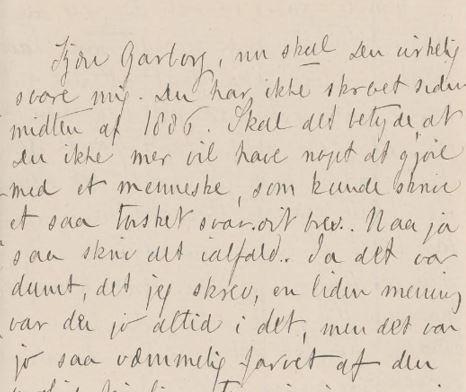 Kjære Garborg, nu skal Du virkelig
svare mig. Du har ikke skrevet siden
midten af 1886. Skal det betyde, at
Du ikke mer vil have noget at gjøre
med et menneske, som kunde skrive
et saa tosket svar brev. Naa ja
saa skriv det ialfald. Ja det var
dumt, det jeg skrev, en liden mening
var der jo altid i det, men det var
jo saa væmmelig farvet af den